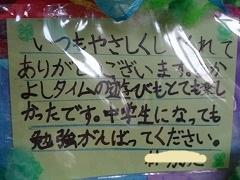 いつもやさしくしてくれて
ありがとうございます。なか
よしタイムの遊びもとても楽し
かったです。中学生になっても
勉強がんばってください。